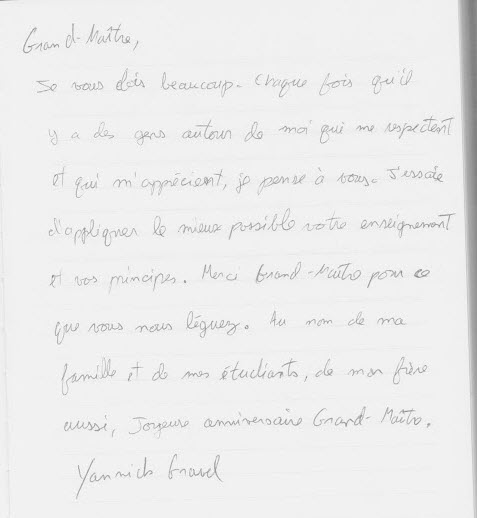 Grand-Maître,
Je vous dois beaucoup. Chaque fois qu'il
y a des gens autour de moi qui me respectent
et qui m'apprécient, je pense à vous. J'essaie
d'appliquer le mieux possible votre enseignement
et vos principes. Merci Grand-Maître pour ce
que vous nous léguez. Au nom de ma
famille et de mes étudiants, de mon frère
aussi, Joyeuse anniversaire Grand-Maître.
Yannick Gravel